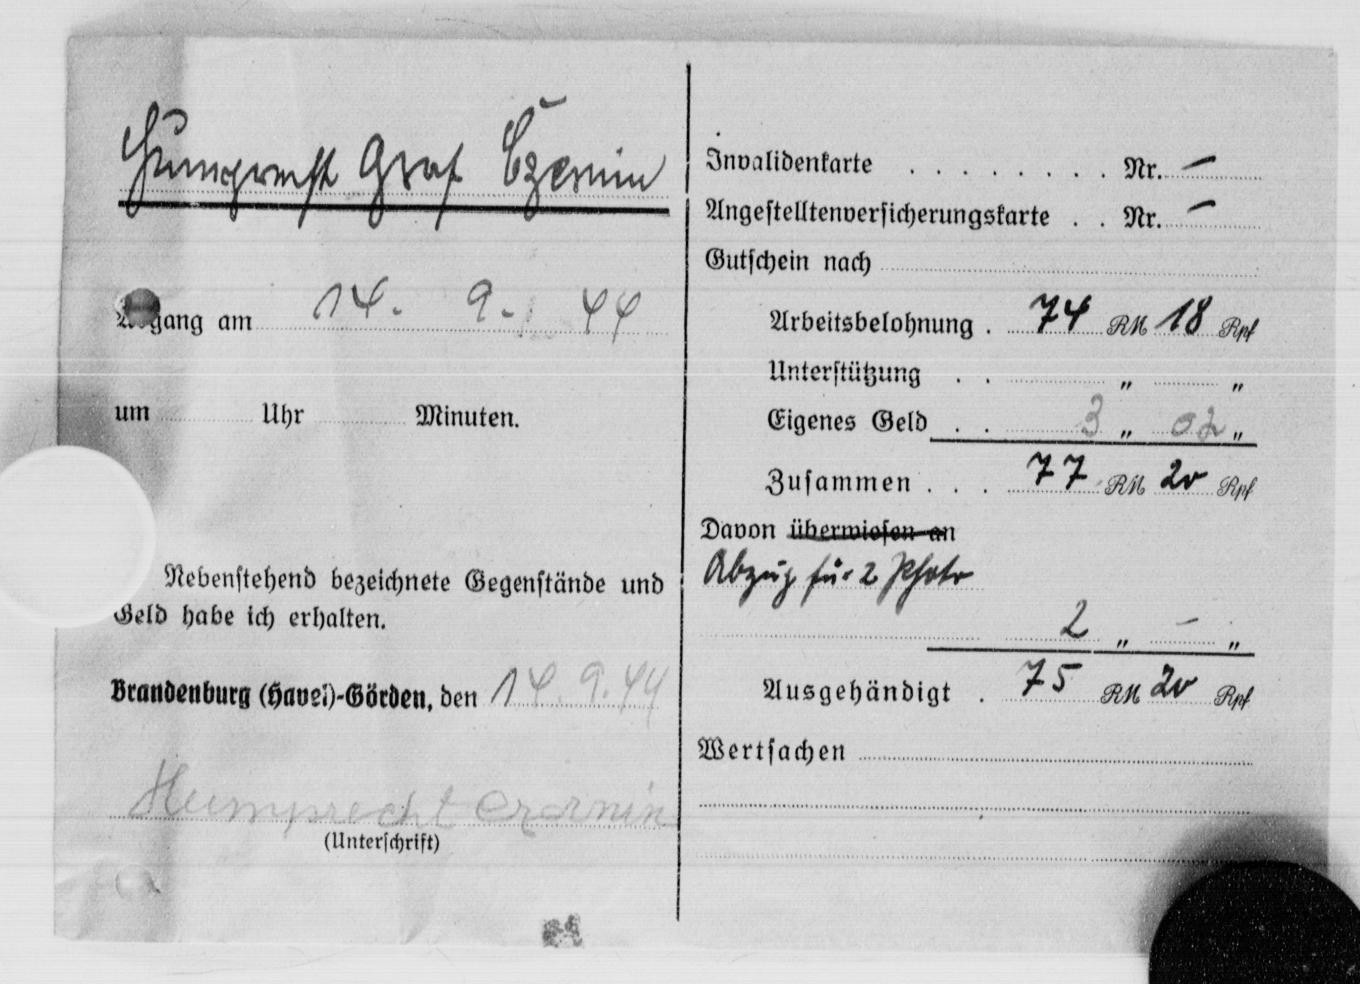 Humprecht Graf Czernin
Abgang am 14. 9. 44
um Uhr Minuten.
Nebenstehend bezeichnete Gegenstände und
Geld habe ich erhalten.
Brandenburg (Havel)-Görden, den 14.9.44
Humprecht Czernin
(Unterschrift)
Invalidenkarte . . . . . . . . . Nr. —
Angestelltenversicherungskarte . . Nr. —
Gutschein nach
Arbeitsbelohnung . 74 RM 18 Rpf
Unterstützung . . „ „
Eigenes Geld . . 3 „ 02 „
Zusammen . . . 77 RM 20 Rpf
Davon überwiesen an
Abzug für 2 Photo
2 „ — „
Ausgehändigt . 75 RM 20 Rpf
Wertsachen